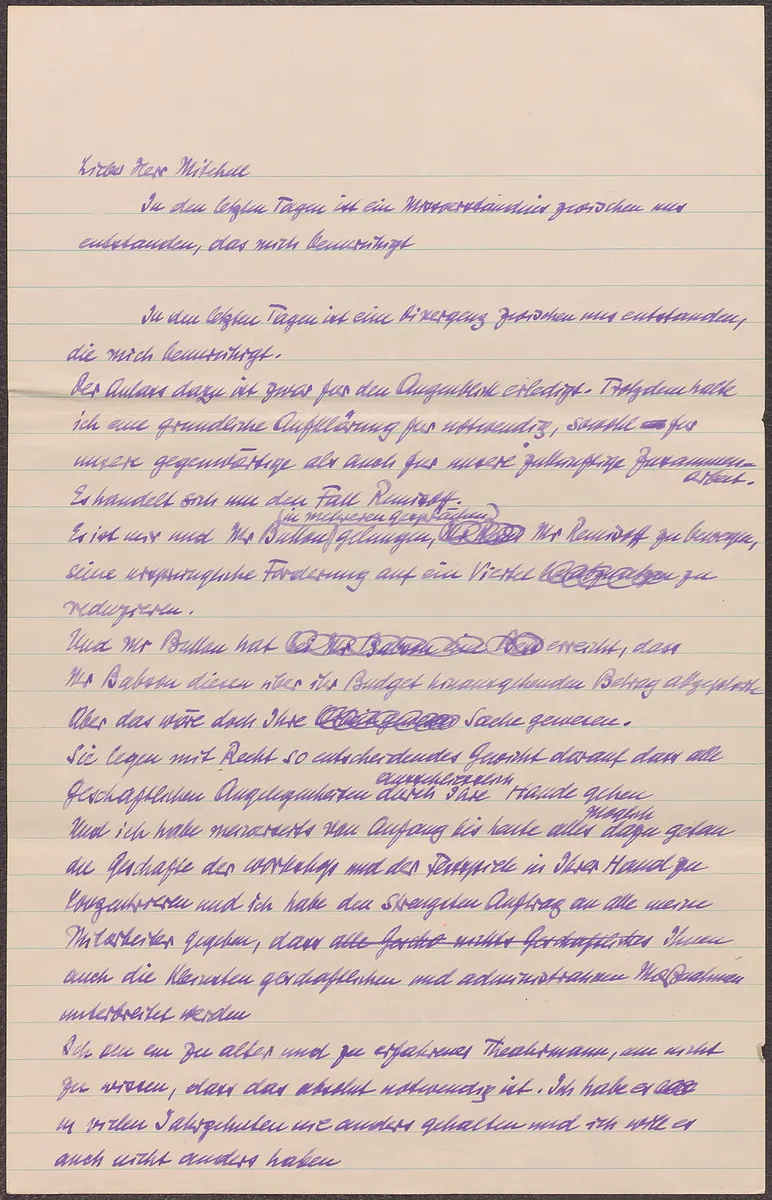 Lieber Herr Mitchell
In den letzten Tagen ist ein Missverständnis zwischen uns
entstanden, das mich beunruhigt
In den letzten Tagen ist eine Divergenz zwischen uns entstanden,
die mich beunruhigt.
Der Anlass dazu ist zwar fur den Augenblick erledigt. Trotzdem halte
ich eine grundliche Aufklärung fur notwendig, sowohl fur
unsere gegenwärtige als auch fur unsere zukunftige Zusammen-
arbeit.
Es handelt sich um den Fall Remisoff.
in mehreren Gesprächen
Es ist mir und Mr gelungen, Mr Remisoff zu bewegen,
seine ursprungliche Forderung auf ein Viertel zu
reduzieren.
Und Mr hat erreicht, dass
Mr Babson diesen uber ihr Budget hinausgehenden Betrag
Aber das wäre doch Ihre Sache gewesen.
Sie legen mit Recht so entscheidendes Gewicht darauf dass alle
ausschliesslich
geschaftlichen Angelegenheiten durch Ihre Hande gehen
möglich
Und ich habe meinerseits von Anfang bis heute alles dazu getan
die Geschafte der workshop und der Festspiele in Ihrer Hand zu
konzentrieren und ich habe den strengsten Auftrag an alle meine
Mitarbeiter gegeben, dass alle nichts Geschaftliches Ihnen
auch die kleinsten geschaftlichen und administrativen Maßnahmen
unterbreitet werden
Ich bin ein zu alter und zu erfahrener Theatermann, um nicht
zu wissen, dass das absolut notwendig ist. Ich habe es
in vielen Jahrzehnten nie anders gehalten und ich will es
auch nicht anders haben